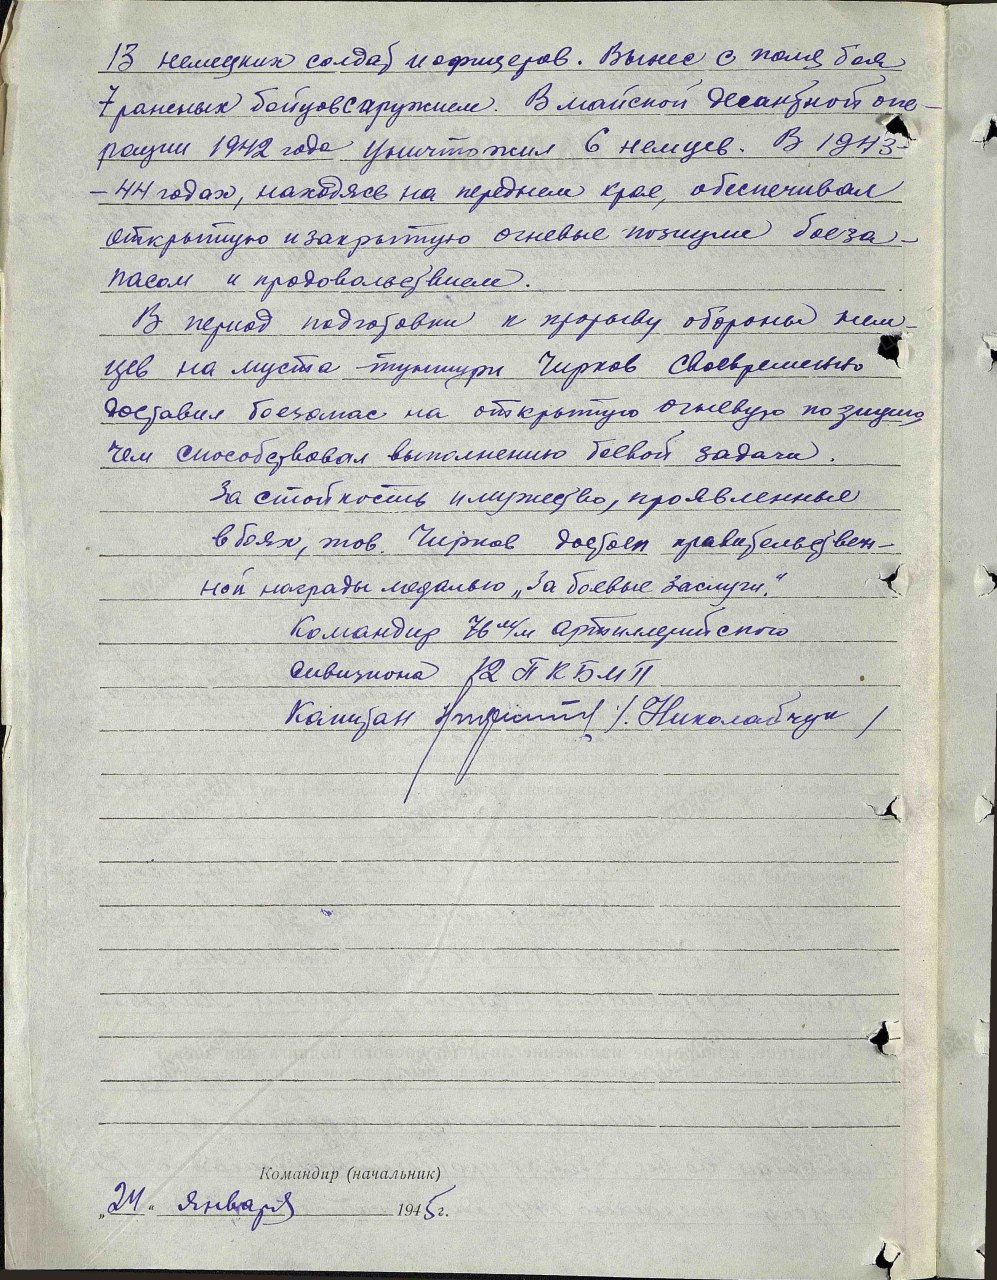 13 немецких солдат и офицеров. Вынес с поля боя
7 раненых бойцов с оружием. В майской десантной опе-
рации 1942 года уничтожил 6 немцев. В 1943-
-44 годах, находясь на переднем крае, обеспечивал
открытую и закрытую огневые позиции боеза-
пасом и продовольствием.
В период подготовки к прорыву обороны нем-
цев на муста-тунтури Чирков своевременно
доставил боезапас на открытую огневую позицию
чем способствовал выполнению боевой задачи.
За стойкость и мужество, проявленные
в боях, тов. Чирков достоен правительствен-
ной награды медалью „За боевые заслуги."
Командир 76 м/м артиллерийского
дивизиона 12 ПКБМП
Капитан /Николайчук/
Командир (начальник)
„24" января 1945 г.